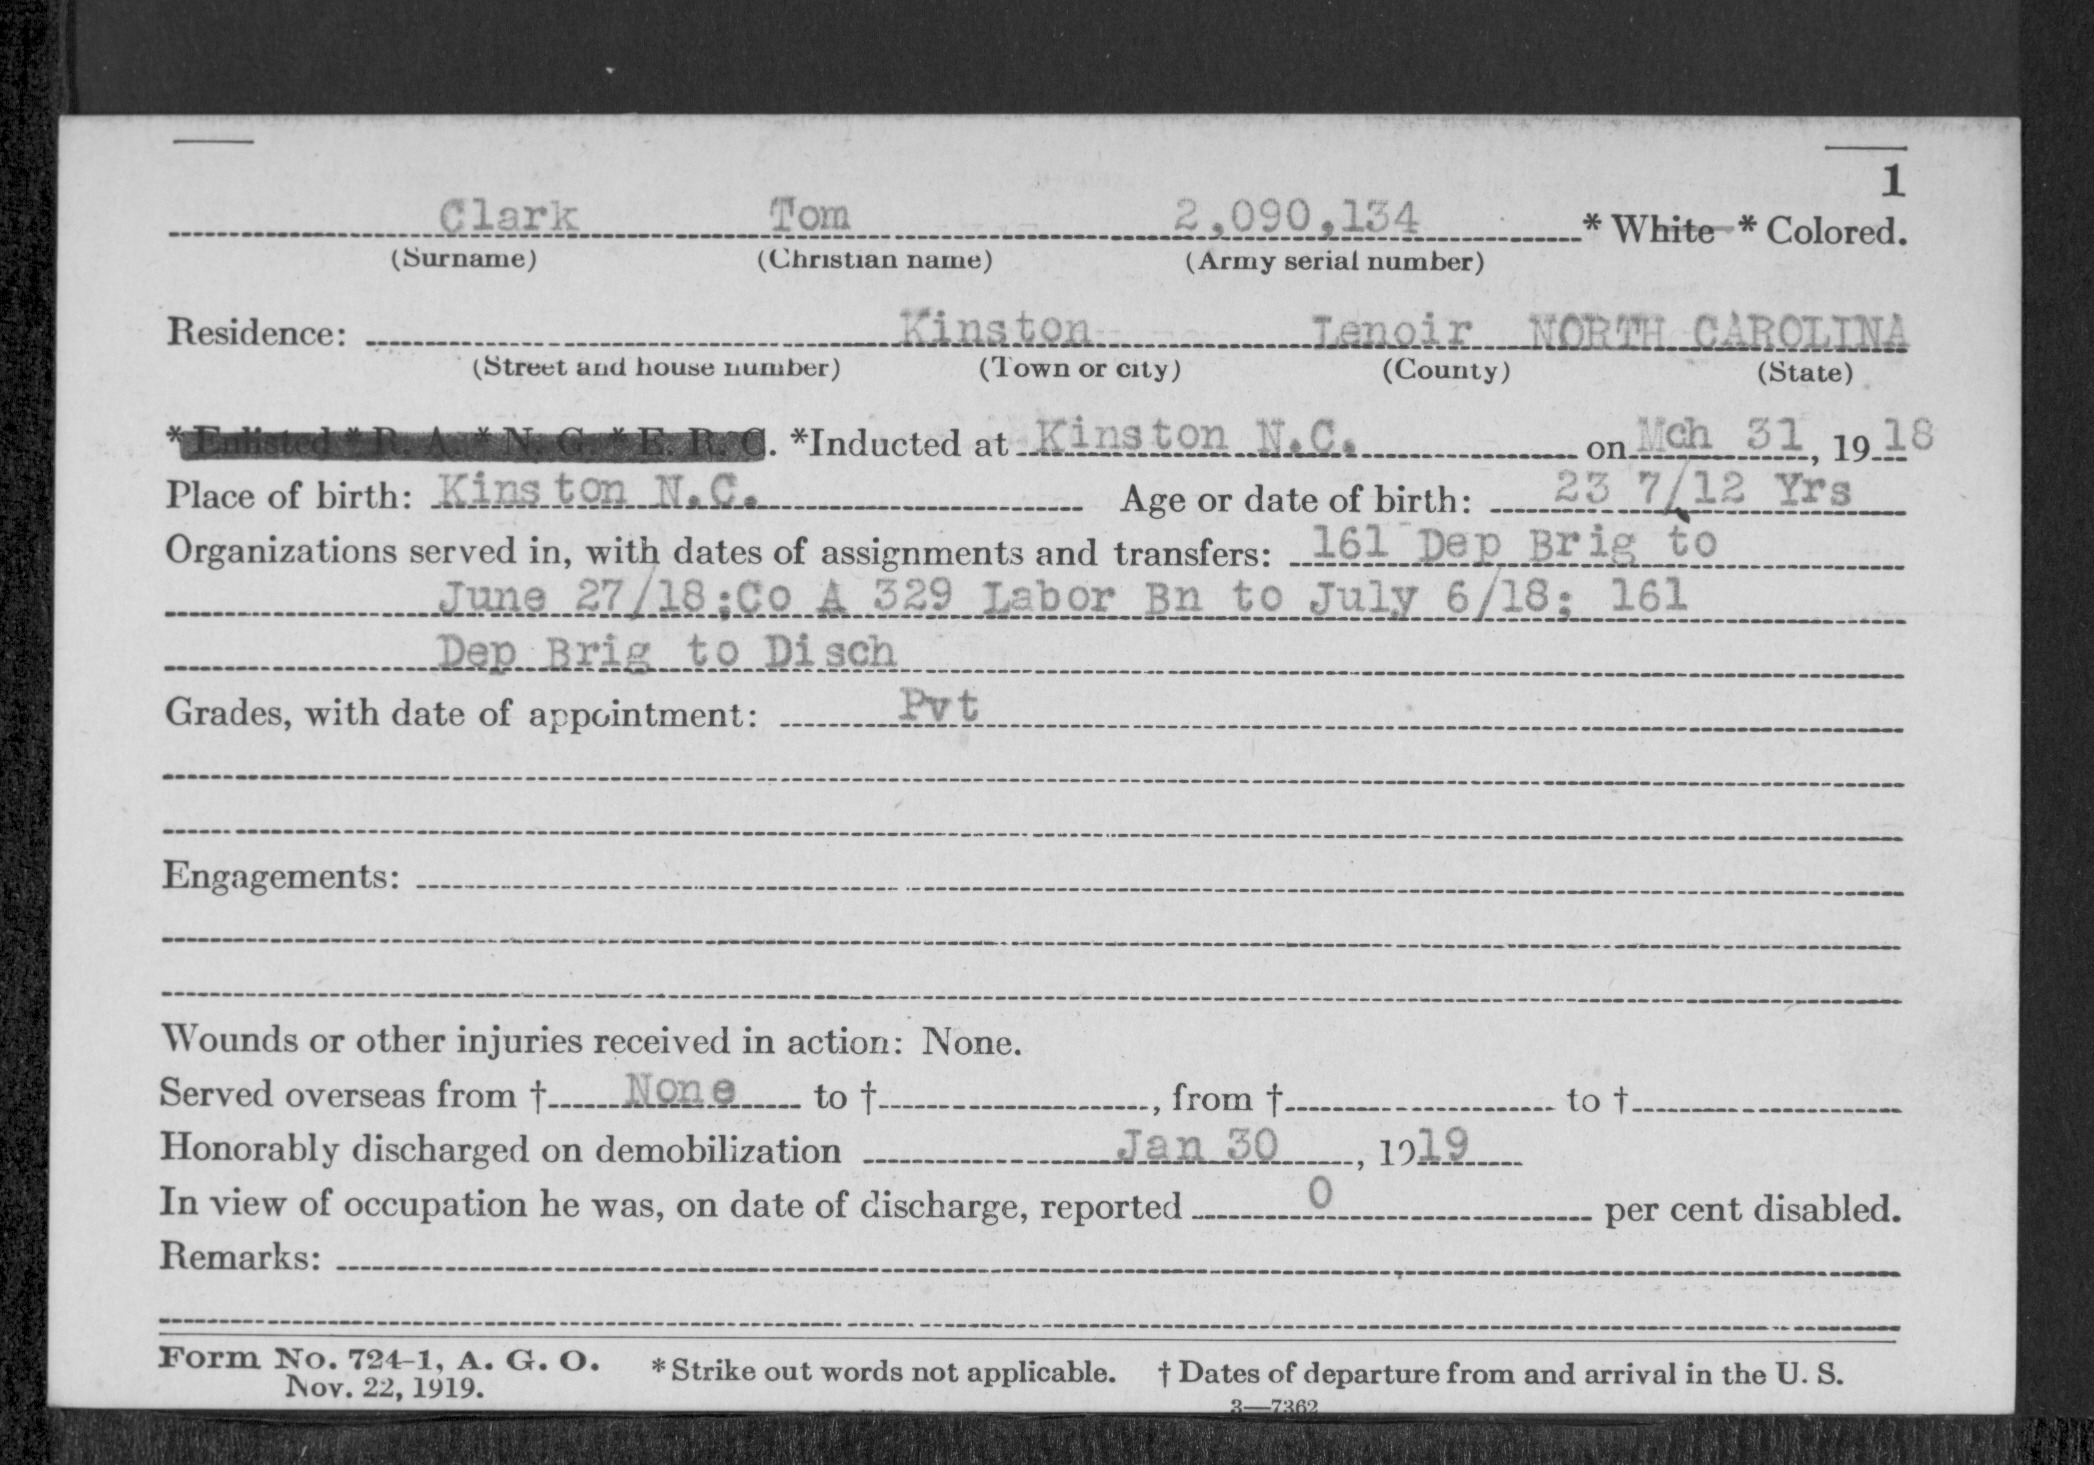 1
Clark Tom 2,090,134 * White * Colored.
(Surname) (Christian name) (Army serial number)
Residence: Kinston Lenoir NORTH CAROLINA
(Street and house number) (Town or city) (County) (State)
* Enlisted * R. A. * N. G. * E. R. C. *Inducted at Kinston N.C. on Mch 31, 1918
Place of birth: Kinston N.C. Age or date of birth: 23 7/12 Yrs
Organizations served in, with dates of assignments and transfers: 161 Dep Brig to
June 27/18;Co A 329 Labor Bn to July 6/18; 161
Dep Brig to Disch
Grades, with date of appointment: Pvt
Engagements:
Wounds or other injuries received in action: None.
Served overseas from † None to †, from † to †
Honorably discharged on demobilization Jan 30, 1919
In view of occupation he was, on date of discharge, reported 0 per cent disabled.
Remarks:
Form No. 724-1, A. G. O. * Strike out words not applicable. † Dates of departure from and arrival in the U. S.
Nov. 22, 1919.
3—7362